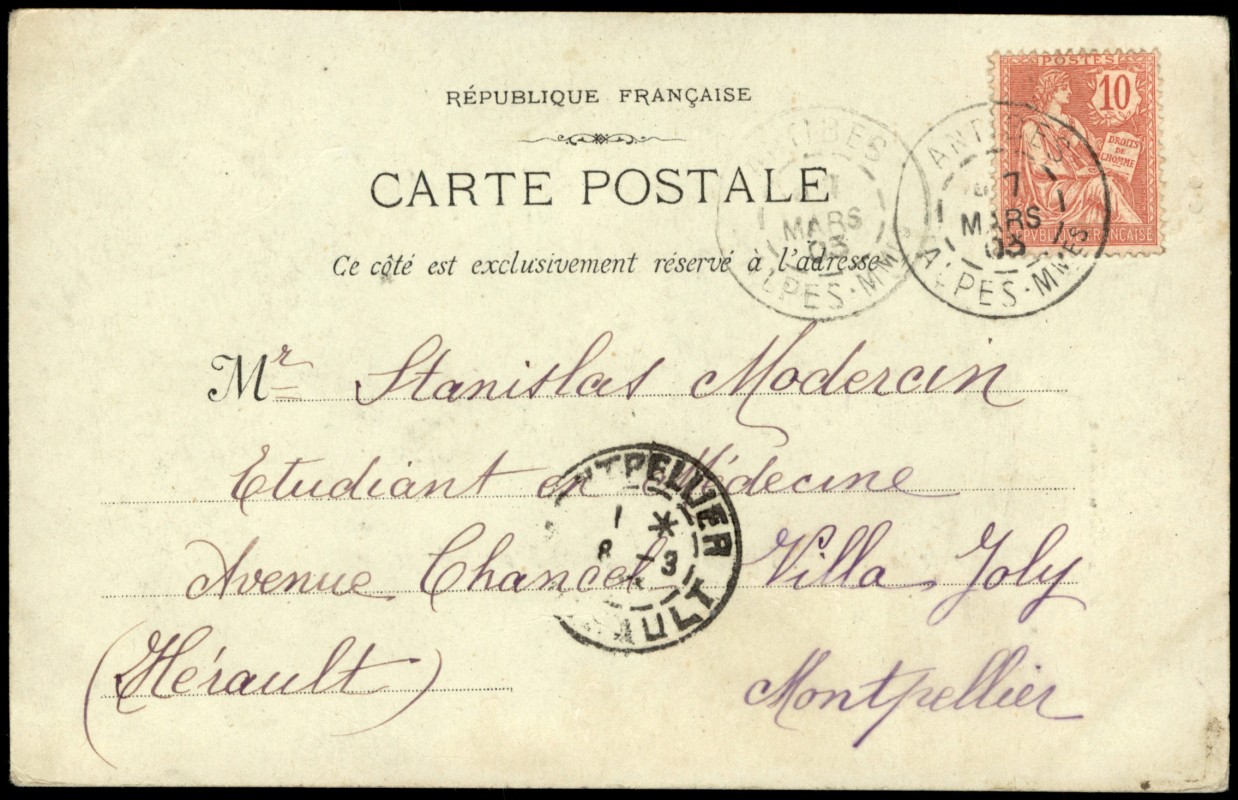 RÉPUBLIQUE FRANÇAISE
CARTE POSTALE
Ce côté est exclusivement réservé à l'adresse
POSTES
10
DROITS DE L'HOMME
REPVBLIQUE FRANÇAISE
ANTIBES
MARS
03
ALPES-MMES
ANTIBES
7
MARS
03
ALPES-MMES
Mr Stanislas Modercin
Etudiant en Médecine
Avenue Chancel Villa Joly
(Hérault) Montpellier
MONTPELLIER
1 *
8 -3
HÉRAULT